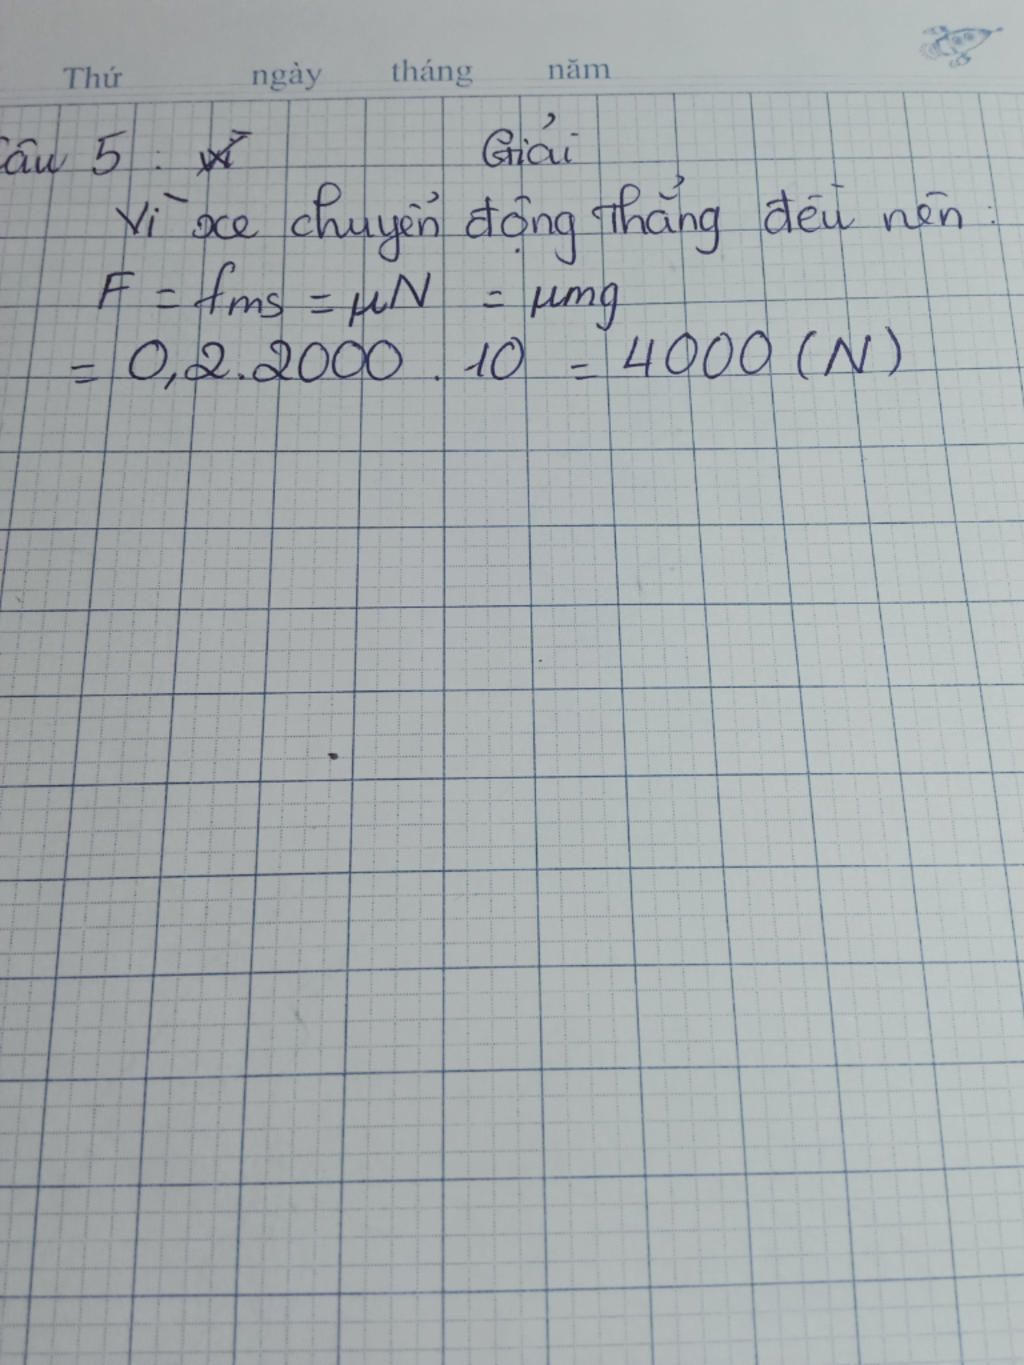 Thứ ngày tháng năm
Câu 5 : Giải
Vì xe chuyển động thẳng đều nên :
F = fms = μN = μmg
= 0,2.2000.10 = 4000 (N)